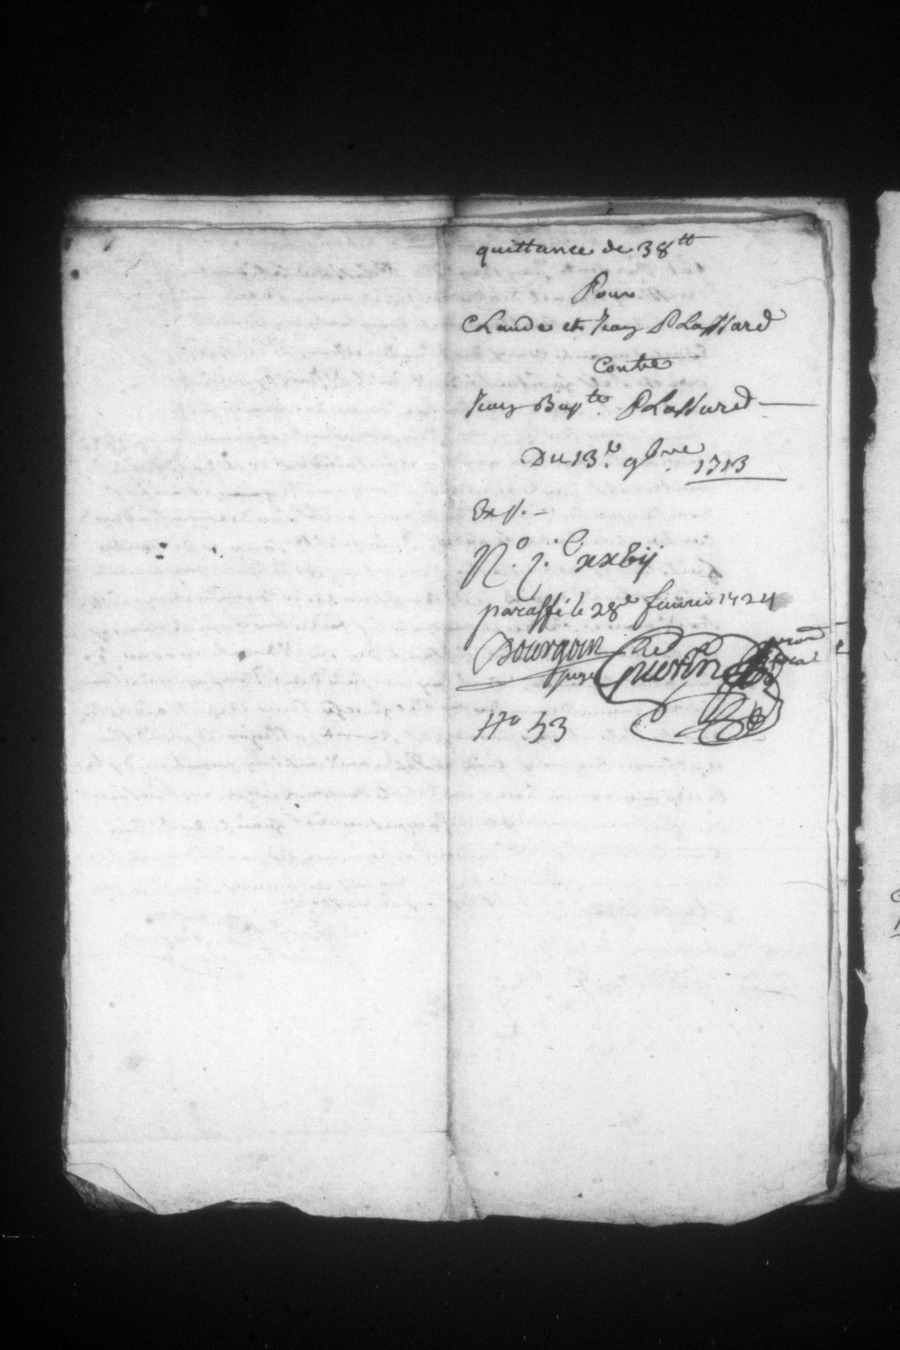 quittance de 38tt
Pour
Claude et Jean Plassard
Contre
Jean Bapte. Plassard
Du 13.e 9bre. 1713
Exp.
No. j.C xxbij
paraffé le 28e feuvrier 1724
Bourgoin Guertin
juge fiscal
No 53